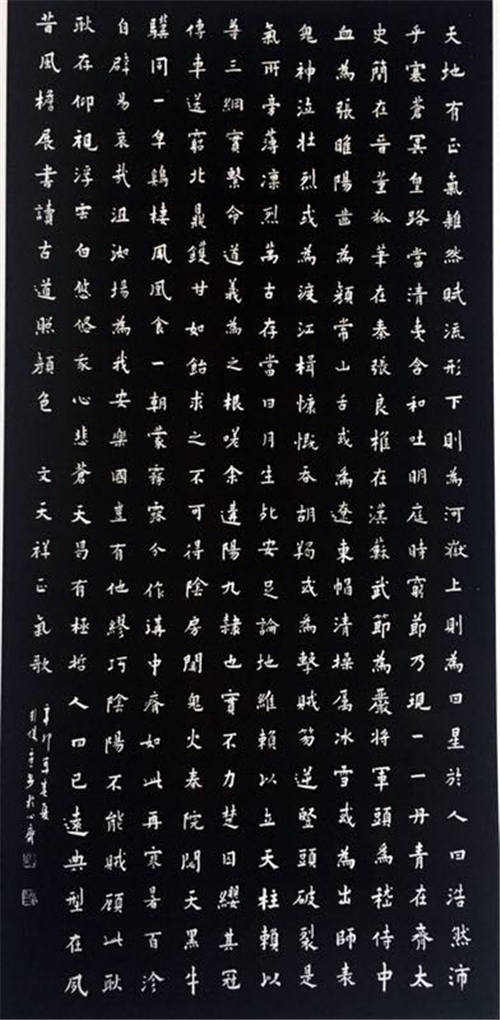 天地有正氣雜然賦流形下則為河嶽上則為日星於人曰浩然沛
乎塞蒼冥皇路當清夷含和吐明庭時窮節乃現一一丹青在齊太
史簡在晉董狐筆在秦張良椎在漢蘇武節為嚴將軍頭為嵇侍中
血為張睢陽齒為顏常山舌或為遼東帽清操厲冰雪或為出師表
鬼神泣壯烈或為渡江楫慷慨吞胡羯或為擊賊笏逆豎頭破裂是
氣所旁薄凜烈萬古存當日月生死安足論地維賴以立天柱賴以
尊三綱實繫命道義為之根嗟余遘陽九隸也實不力楚囚纓其冠
傳車送窮北鼎鑊甘如飴求之不可得陰房闃鬼火春院閟天黑牛
驥同一皁鷄棲鳳凰食一朝蒙霧露分作溝中瘠如此再寒暑百沴
自辟易哀哉沮洳場為我安樂國豈有他繆巧陰陽不能賊顧此耿
耿存仰視浮雲白悠悠我心悲蒼天曷有極哲人日已遠典型在夙
昔風檐展書讀古道照顏色 文天祥正氣歌
辛卯年